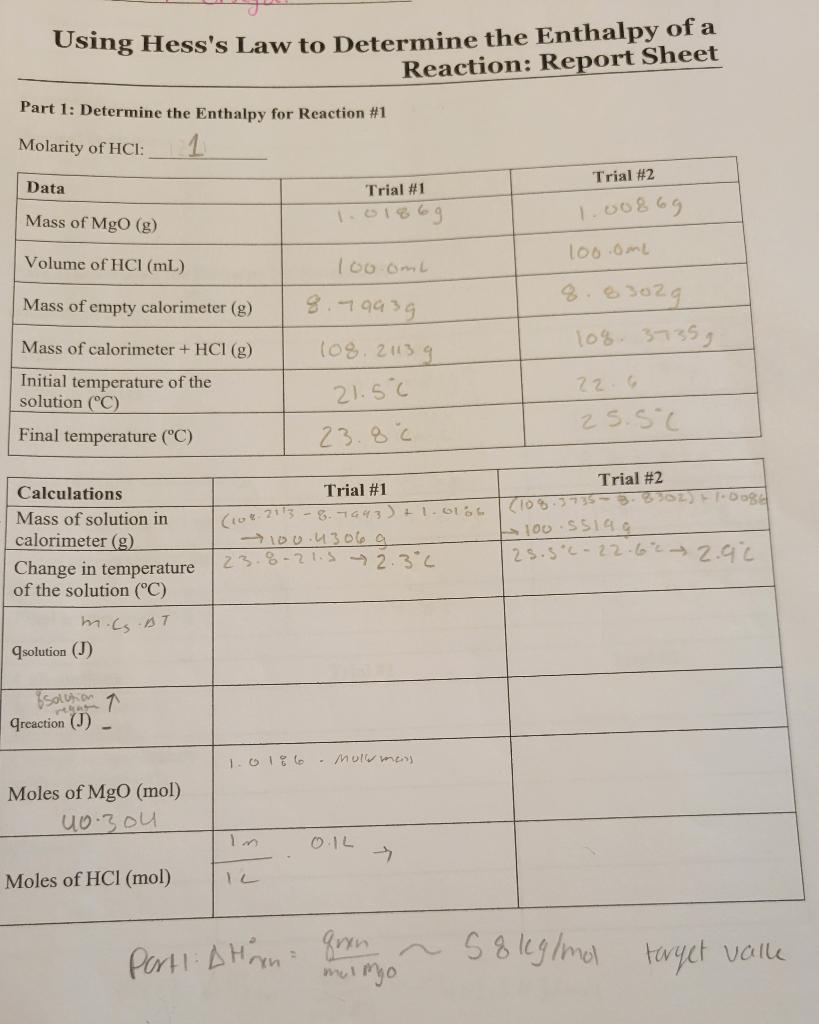 Using Hess's Law to Determine the Enthalpy of a
Reaction: Report Sheet
Part 1: Determine the Enthalpy for Reaction #1
Molarity of HCl: 1
Data Trial #1 Trial #2
Mass of MgO (g) 1.0186g 1.0086g
Volume of HCl (mL) 100.0mL 100.0mL
Mass of empty calorimeter (g) 8.7993g 8.8302g
Mass of calorimeter + HCl (g) 108.2113g 108.3735g
Initial temperature of the
solution (ºC) 21.5°C 22.6
Final temperature (ºC) 23.8°C 25.5°C
Calculations Trial #1 Trial #2
Mass of solution in (108.2113 - 8.7993) + 1.0186 (108.3735 - 8.8302) + 1.0086
calorimeter (g) → 100.4306g → 100.5519g
Change in temperature 23.8-21.5 → 2.3°C 25.5°C - 22.6°C → 2.9°C
of the solution (ºC)
m·Cs·ΔT
qsolution (J)
qsolution ↑
qreaction (J) -
1.0186 ·
Moles of MgO (mol)
40.304
1m · 0.1L →
Moles of HCl (mol) 1L
Part1: ΔH°rxn = qrxn ~ 58 kg/mol target value
mol MgO